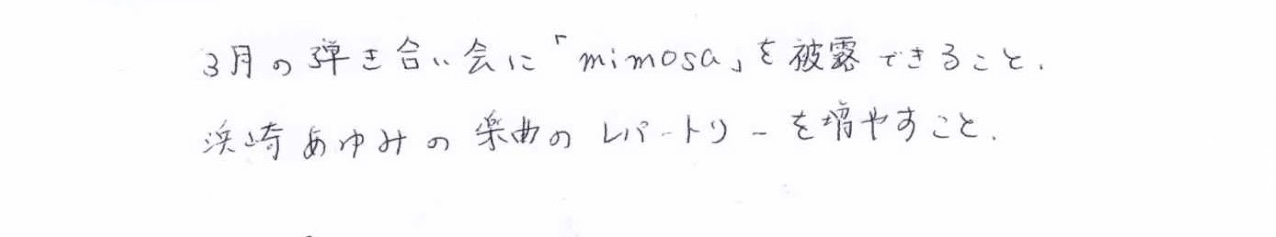 3月の弾き合い会に「mimosa」を被露できること.
浜崎あゆみの楽曲のレパートリーを増やすこと.